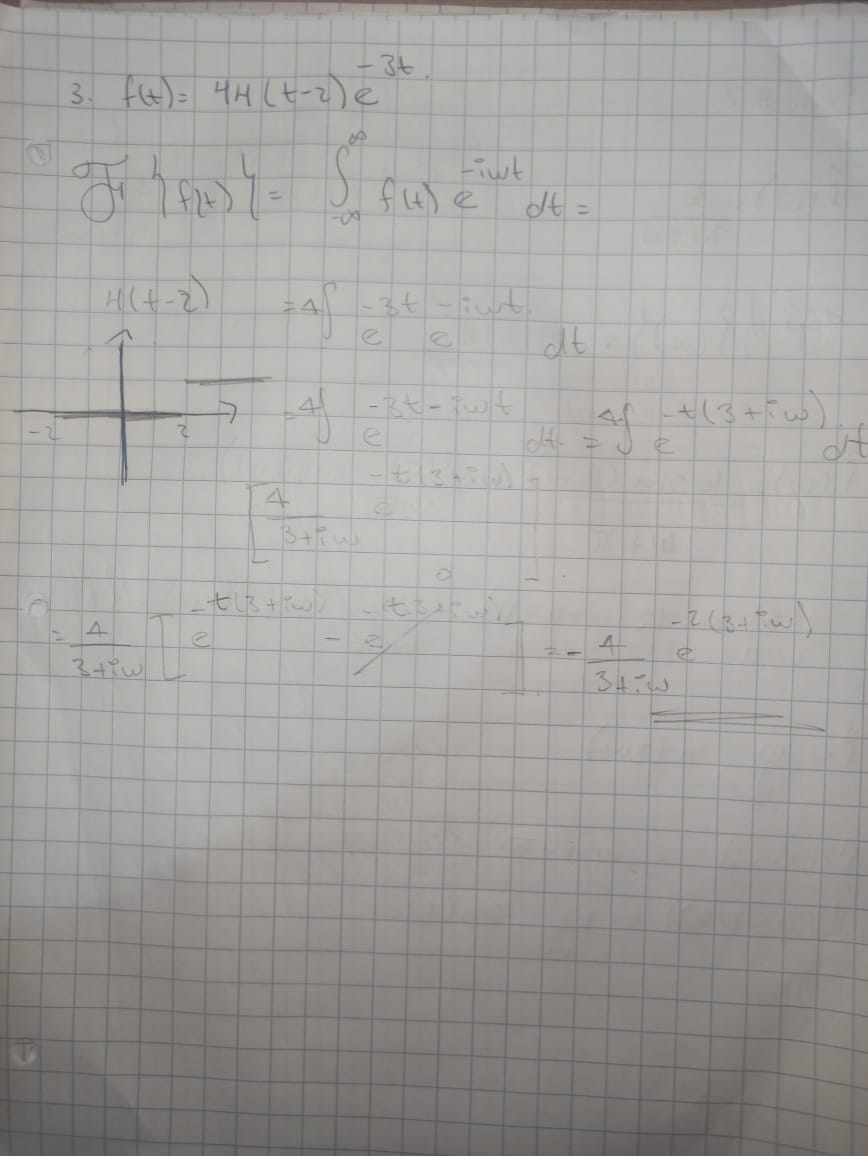 3. f(t) = 4H(t-2)e^{-3t}.
F{f(t)} = ∫_{-∞}^{∞} f(t) e^{-iwt} dt =
H(t-2) = 4∫ e^{-3t} e^{-iwt} dt
-2 2 = 4∫ e^{-3t-iwt} dt. = 4∫ e^{-t(3+iw)} dt
[ 4/(3+iw) e^{-t(3+iw)}
= 4/(3+iw) [ e^{-t(3+iw)} - e^{-t(3+iw)} 0 ] = - 4/(3+iw) e^{-2(3+iw)}